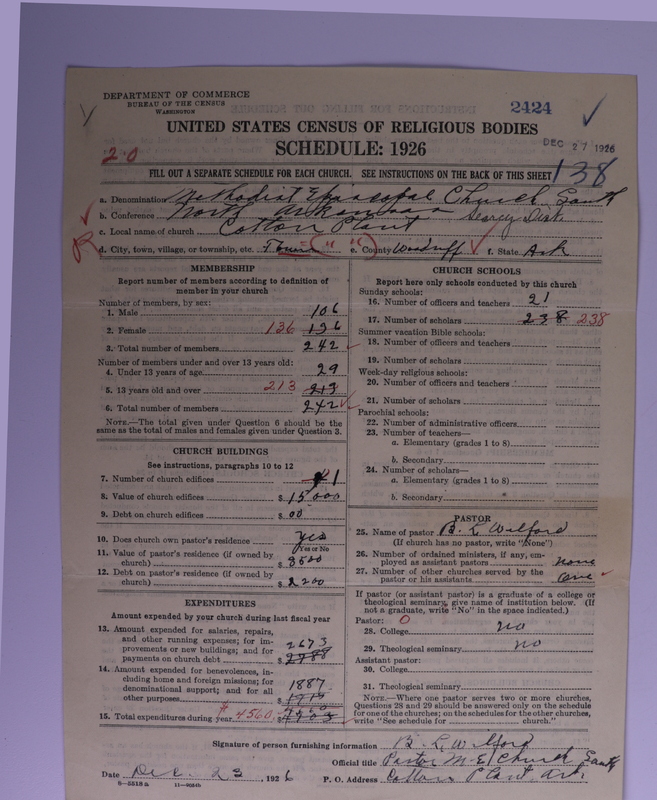 DEPARTMENT OF COMMERCE
BUREAU OF THE CENSUS
WASHINGTON
2424
UNITED STATES CENSUS OF RELIGIOUS BODIES
DEC 27 1926
2.0
SCHEDULE: 1926
FILL OUT A SEPARATE SCHEDULE FOR EACH CHURCH. SEE INSTRUCTIONS ON THE BACK OF THIS SHEET
138
a. Denomination Methodist Episcopal Church, South
b. Conference North Arkansas Searcy Dist.
c. Local name of church Cotton Plant
d. City, town, village, or township, etc. e. County Woodruff f. State Ark
MEMBERSHIP
Report number of members according to definition of member in your church
Number of members, by sex:
1. Male 106
2. Female 136 136
3. Total number of members 242
Number of members under and over 13 years old:
4. Under 13 years of age 29
5. 13 years old and over 213 213
6. Total number of members 242
NOTE.—The total given under Question 6 should be the same as the total of males and females given under Question 3.
CHURCH BUILDINGS
See instructions, paragraphs 10 to 12
7. Number of church edifices 1
8. Value of church edifices $ 15000
9. Debt on church edifices $ 00
10. Does church own pastor's residence? yes
Yes or No
11. Value of pastor's residence (if owned by church) $ 3500
12. Debt on pastor's residence (if owned by church) $ 2200
EXPENDITURES
Amount expended by your church during last fiscal year
13. Amount expended for salaries, repairs, and other running expenses; for improvements or new buildings; and for payments on church debt $ 2673
14. Amount expended for benevolences, including home and foreign missions; for denominational support; and for all other purposes 1887
15. Total expenditures during year $ 4560
CHURCH SCHOOLS
Report here only schools conducted by this church
Sunday schools:
16. Number of officers and teachers 21
17. Number of scholars 238 238
Summer vacation Bible schools:
18. Number of officers and teachers
19. Number of scholars
Week-day religious schools:
20. Number of officers and teachers
21. Number of scholars
Parochial schools:
22. Number of administrative officers
23. Number of teachers—
a. Elementary (grades 1 to 8)
b. Secondary
24. Number of scholars—
a. Elementary (grades 1 to 8)
b. Secondary
PASTOR
25. Name of pastor B. L. Wilford
(If church has no pastor, write "None")
26. Number of ordained ministers, if any, employed as assistant pastors none
27. Number of other churches served by the pastor or his assistants one
If pastor (or assistant pastor) is a graduate of a college or theological seminary, give name of institution below. (If not a graduate, write "No" in the space indicated.)
Pastor: 0
28. College no
29. Theological seminary no
Assistant pastor:
30. College
31. Theological seminary
NOTE.—Where one pastor serves two or more churches, Questions 28 and 29 should be answered only on the schedule for one of the churches; on the schedules for the other churches, write "See schedule for church."
Signature of person furnishing information B. L. Wilford
Official title Pastor M. E. Church South
Date Dec. 23, 1926 P. O. Address Cotton Plant Ark
8—5518a 11—9024b